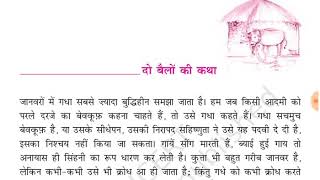 दो बैलों की कथा
जानवरों में गधा सबसे ज्यादा बुद्धिहीन समझा जाता है। हम जब किसी आदमी को
परले दरजे का बेवकूफ़ कहना चाहते हैं, तो उसे गधा कहते हैं। गधा सचमुच
बेवकूफ़ है, या उसके सीधेपन, उसकी निरापद सहिष्णुता ने उसे यह पदवी दे दी है,
इसका निश्चय नहीं किया जा सकता। गायें सींग मारती हैं, ब्याई हुई गाय तो
अनायास ही सिंहनी का रूप धारण कर लेती है। कुत्ता भी बहुत गरीब जानवर है,
लेकिन कभी-कभी उसे भी क्रोध आ ही जाता है; किंतु गधे को कभी क्रोध करते